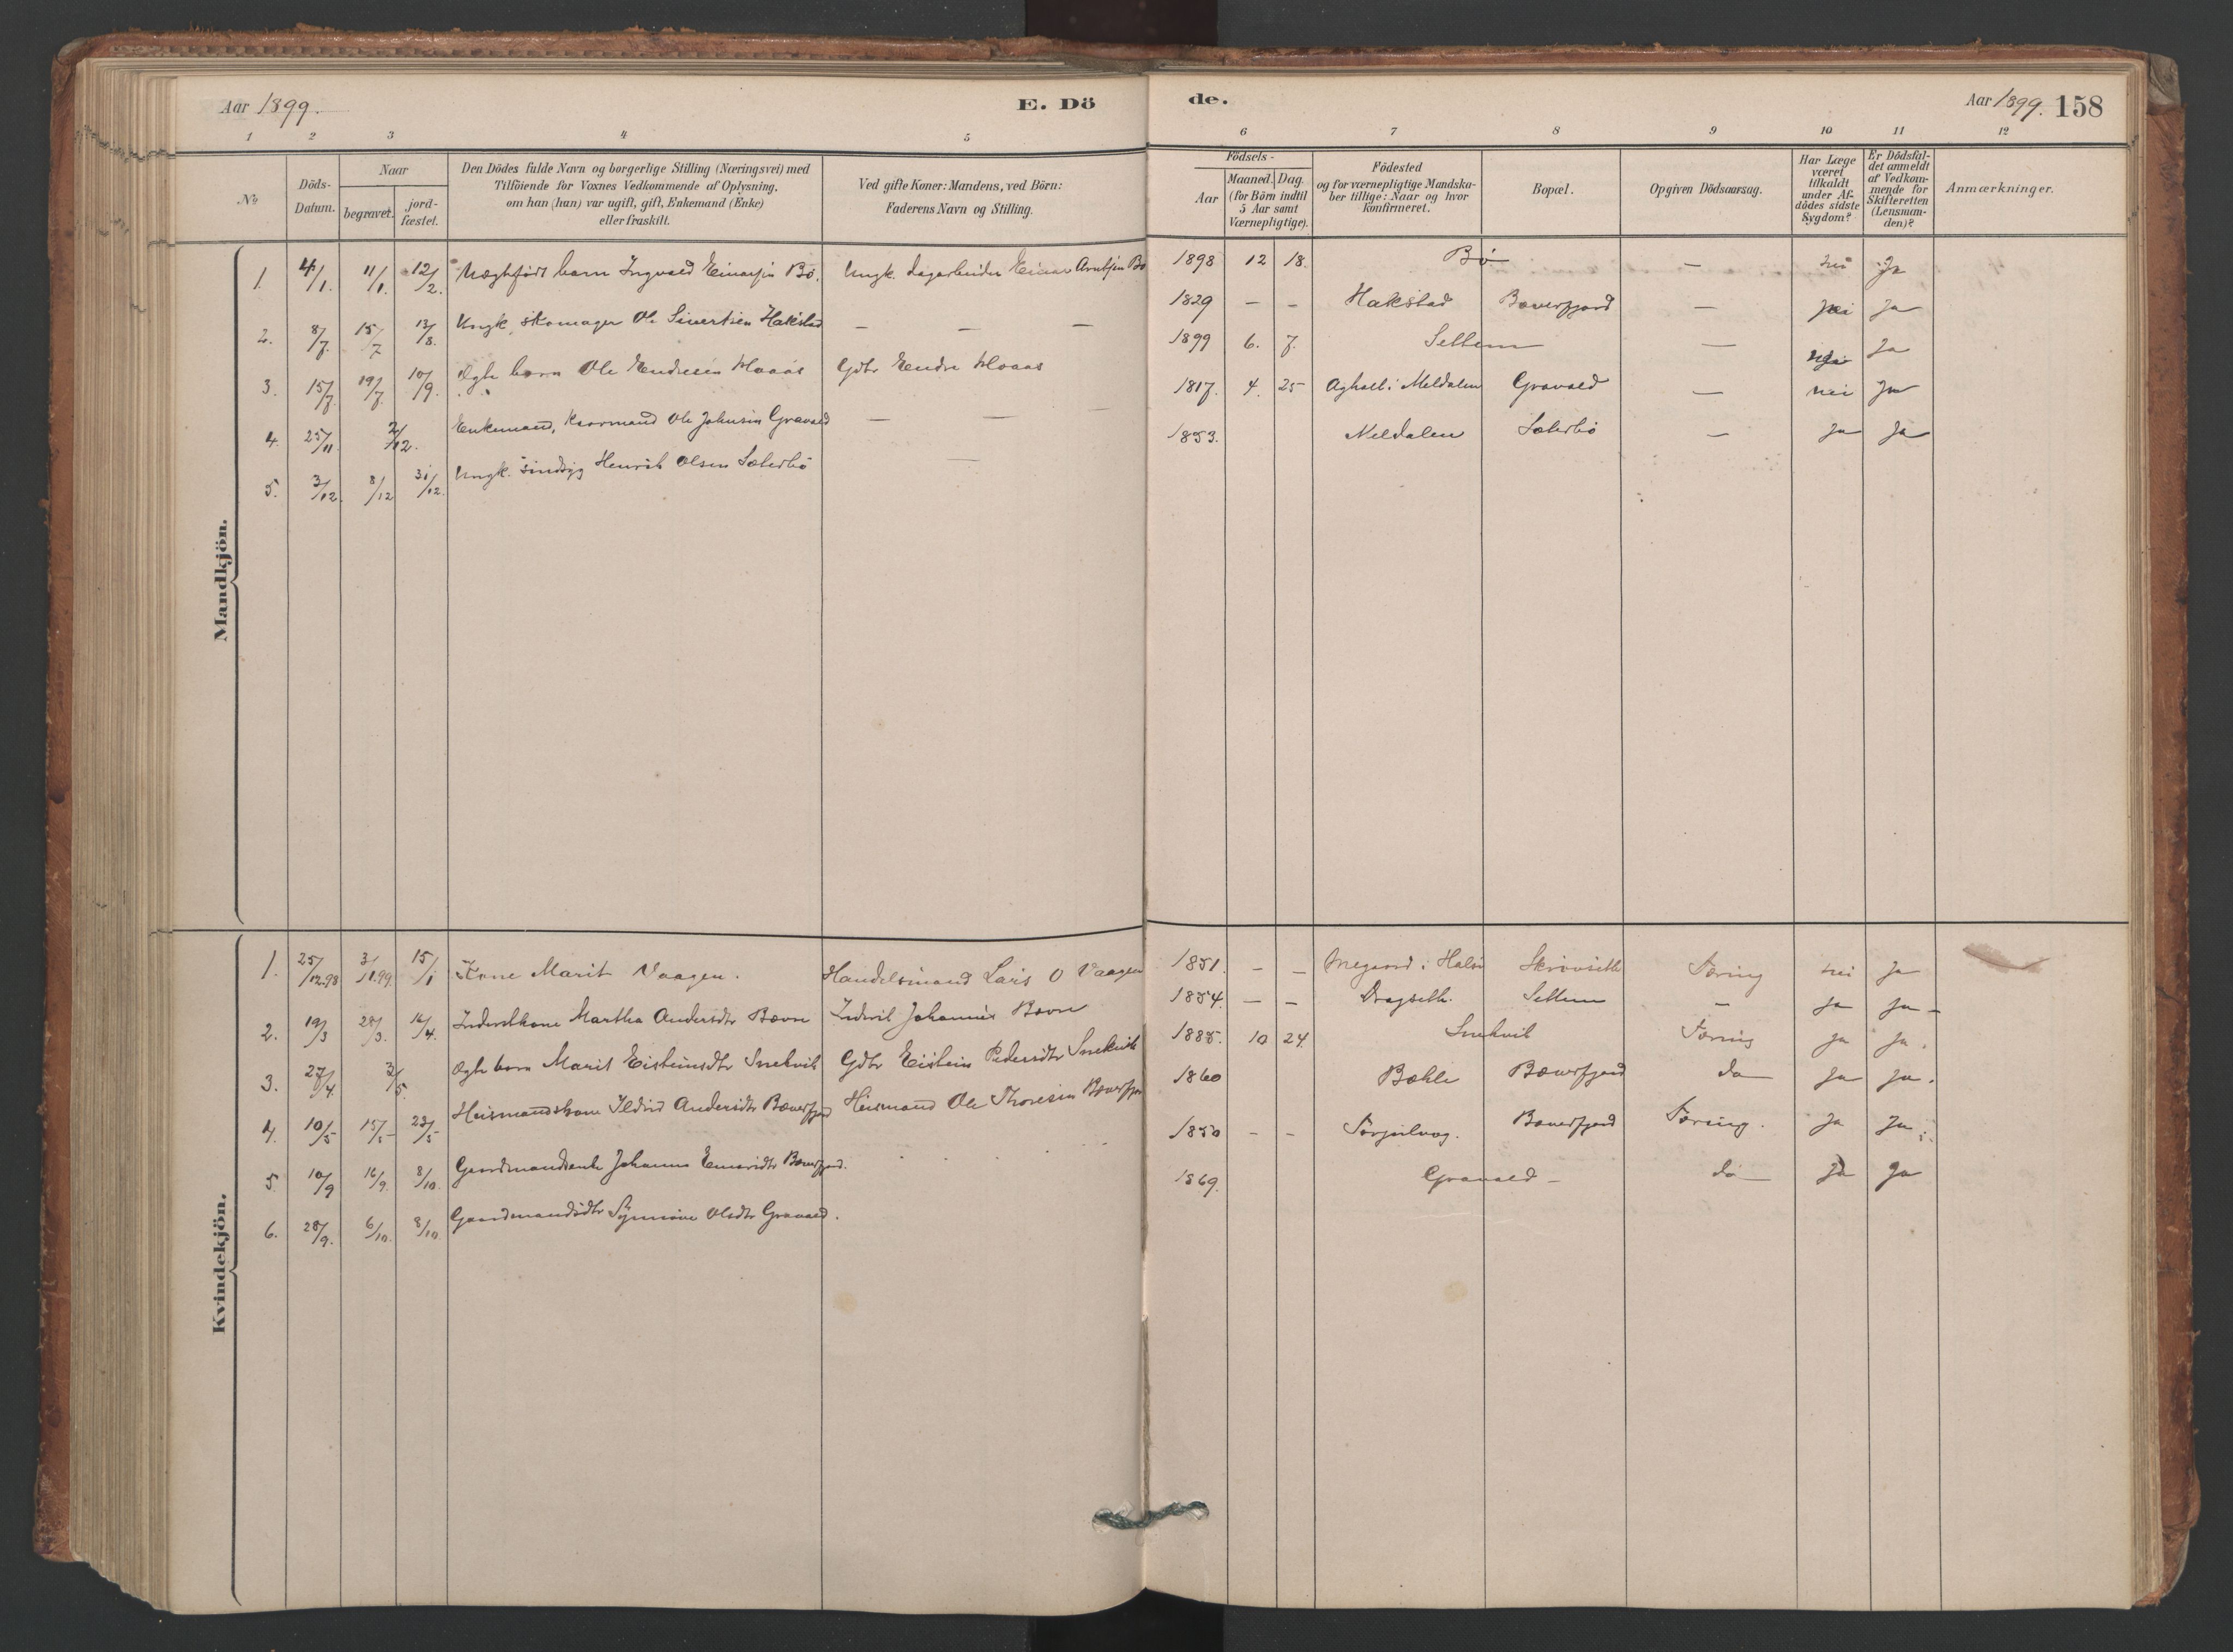 Aar 1899. E. Dö de. Aar 1899. 158
1 2 3 4 5 6 7 8 9 10 11 12
No
Döds-
Datum.
Naar
begravet.
jord-
fæstet.
Den Dödes fulde Navn og borgerlige Stilling (Næringsvei) med
Tilföiende for Voxnes Vedkommende af Oplysning,
om han (hun) var ugift, gift, Enkemand (Enke)
eller fraskilt.
Ved gifte Koner: Mandens, ved Börn:
Faderens Navn og Stilling.
Födsels-
Aar
Maaned. Dag.
(for Börn indtil
5 Aar samt
Værnepligtige).
Födested
og for værnepligtige Mandska-
ber tillige: Naar og hvor
konfirmeret.
Bopæl.
Opgiven Dödsaarsag.
Har Læge
været
tilkaldt
under Af-
dödes sidste
Sygdom?
Er Dödsfal-
det anmeldt
af Vedkom-
mende for
Skifteretten
(Lensman-
den)?
Anmærkninger.
Mandkjön.
1. 4/1. 11/1. 12/2. Uægtefödt barn Ingvald Einarsen Bö. Ungk. dagarbeider Einar Arntsen Bö 1898 12 18. Bö — nei Ja
2. 8/7. 15/7 13/8. Ungk. skomager Ole Sivertsen Hakstad — — — 1829 — — Hakstad Bæverfjord — nei Ja
3. 15/7. 19/7. 10/9. Ægte barn Ole Endresen Moaas Gdbr Endre Moaas 1899 6. 7. Settem — nei Ja
4. 25/11. 2/12. Enkemand, Kaarmand Ole Johnsen Gravald — — — 1817. 4. 25 i Meldalen Gravald — nei Ja
5. 3/12. 8/12 31/12. Ungk. sindsyg Henrik Olsen Sæterbö — 1853. Meldalen Sæterbö — Ja Ja
Kvindekjön.
1. 25/12.98 3/1.99. 15/1 Kone Marit Vaagen. Handelsmand Lars O Vaagen 1851. — — i Halse Skrövseth Tæring nei Ja
2. 19/3 28/3. 16/4. Inderstkone Martha Andersdtr Bævre Inderst Johannes Bævre 1854. — — Dragseth. Settem — Ja Ja —
3. 27/4. 2/5. Ægte barn Marit Eisteinsdtr Snekvik Gdbr Eistein Pedersdtr Snekvik 1885. 10 24. Snekvik Tæring Ja Ja.
4. 10/5 15/5 23/5 Huusmandskone Ildrid Andersdtr Bæverfjord Huusmand Ole Thoresen Bæverfjord 1860 Bæhle Bæverfjord do Ja Ja.
5. 10/9 16/9. 8/10. Gaardmandsenke Johanna Bæverfjord. 1850 — — Bæverfjord Tæring. Ja Ja.
6. 28/9. 6/10. 8/10 Gaardmandsdtr Synnöve Olsdtr Gravald. 1869. Gravald — do Ja Ja